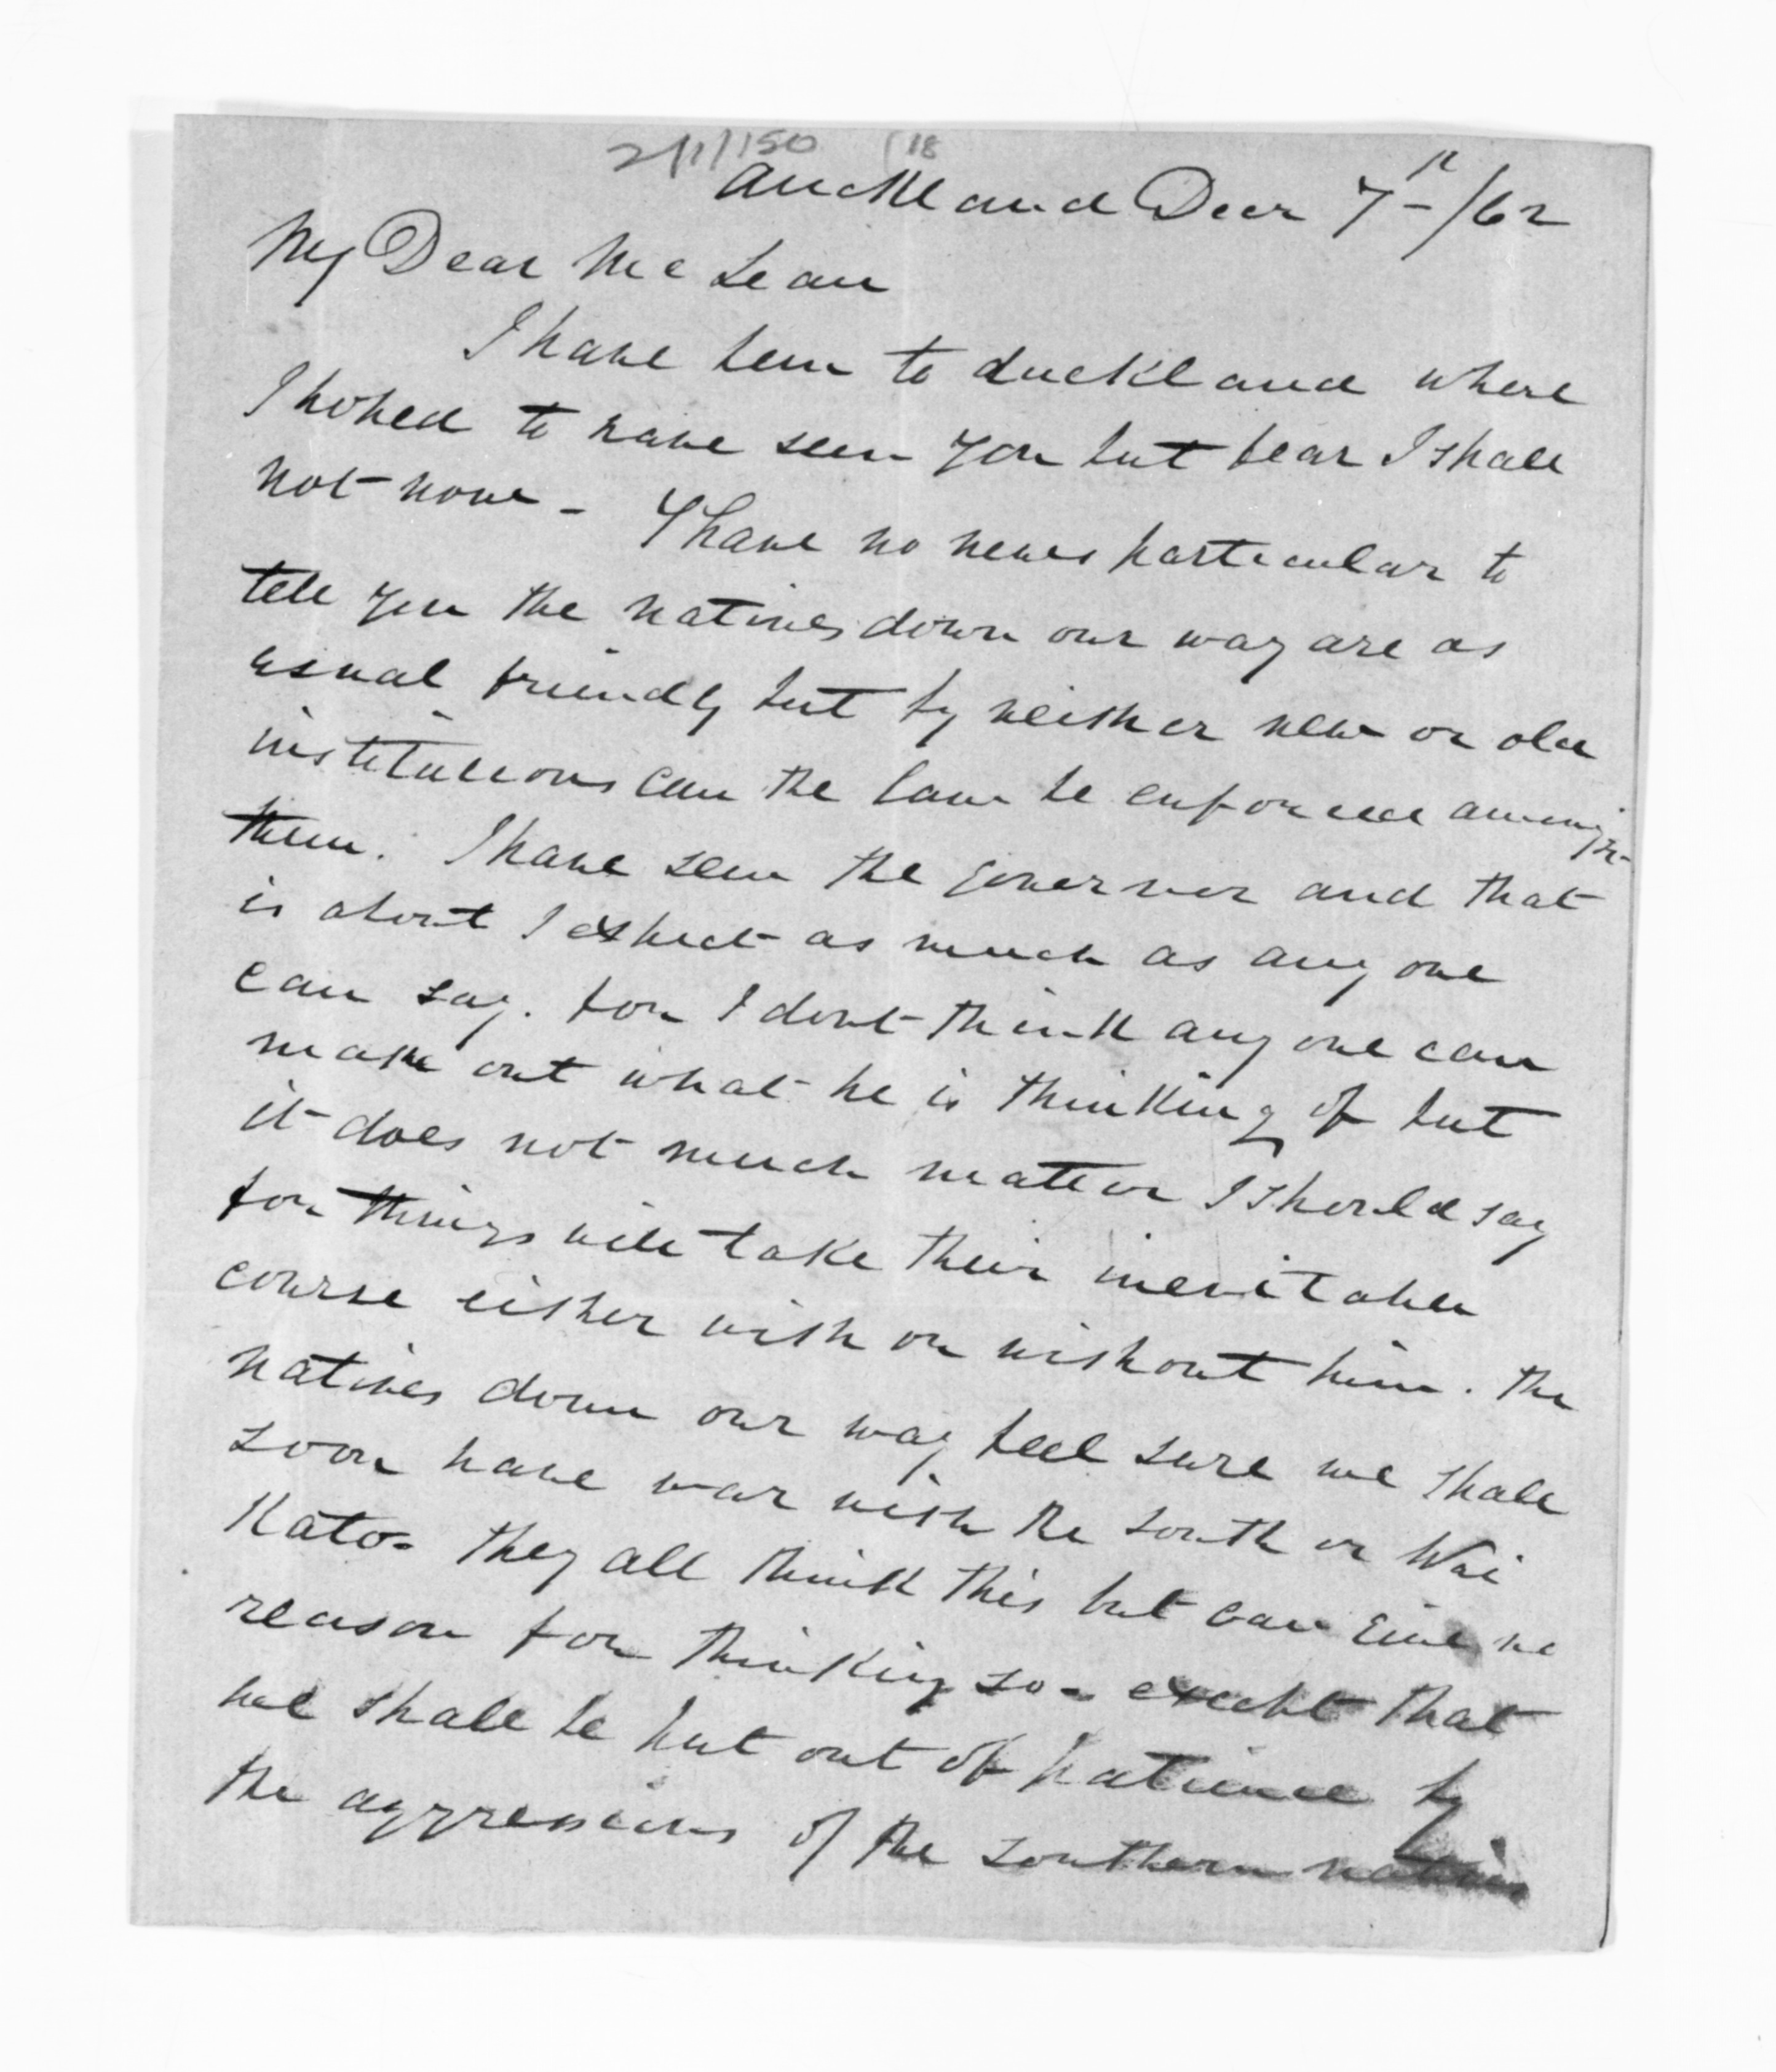 2/1/150 (18
Auckland Decr 7th/62
My Dear McLean
I have been to Auckland where
I hoped to have seen you but fear I shall
not now - I have no news particular to
tell you the natives down our way are as
usual friendly but by neither new or old
institutions can the law be enforced amongst
them. I have seen the Governor and that
is about I expect as much as any one
can say. for I dont think any one can
make out what he is thinking of but
it does not much matter I should say
for things will take their inevitable
course either with or without him. The
natives down our way feel sure we shall
soon have war with the south or Wai
Kato - they all think this but can give no
reason for thinking so - except that
we shall be put out of patience by
the aggressions of the southern natives